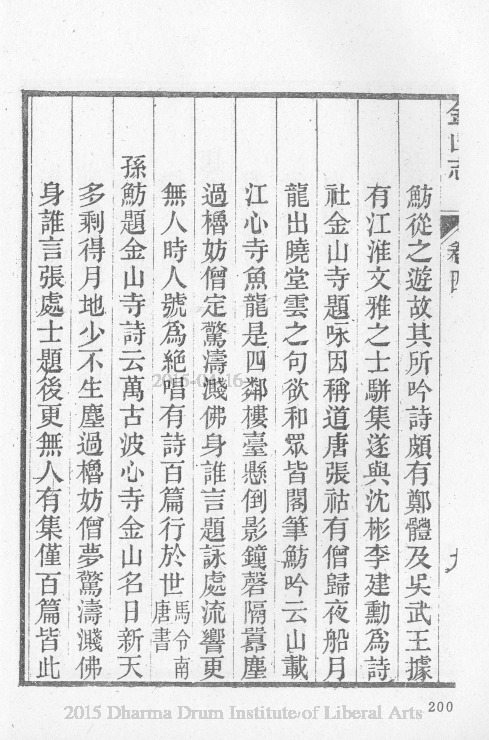 金山志
卷四
九
魴從之遊故其所吟詩頗有鄭體及吳武王據
有江淮文雅之士騈集遂與沈彬李建勳爲詩
社金山寺題咏因稱道唐張祜有僧歸夜船月
龍出曉堂雲之句欲和眾皆閣筆魴吟云山載
江心寺魚龍是四鄰樓臺懸倒影鐘磬隔囂塵
過櫓妨僧定驚濤濺佛身誰言題詠處流響更
無人時人號爲絕唱有詩百篇行於世馬令南唐書
孫魴題金山寺詩云萬古波心寺金山名日新天
多剩得月地少不生塵過櫓妨僧夢驚濤濺佛
身誰言張處士題後更無人有集僅百篇皆此
2015 Dharma Drum Institute of Liberal Arts
200